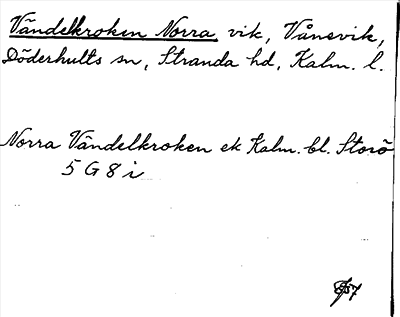 Vändelkroken Norra, vik, Vånevik,
Döderhults sn, Stranda hd, Kalm. l.
Norra Vändelkroken ek Kalm. bl. Storö
5 G 8 i